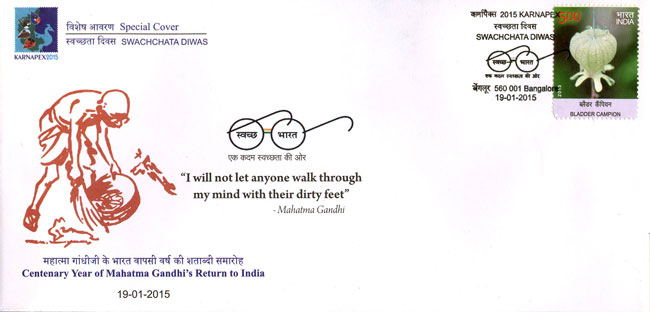 KARNAPEX2015
विशेष आवरण Special Cover
स्वच्छता दिवस SWACHCHATA DIWAS
कर्नापैक्स 2015 KARNAPEX
स्वच्छता दिवस
SWACHCHATA DIWAS
स्वच्छ भारत
एक कदम स्वच्छता की ओर
बेंगलूर 560 001 Bangalore
19-01-2015
500
भारत
INDIA
ब्लैडर कैंपियन
BLADDER CAMPION
स्वच्छ भारत
एक कदम स्वच्छता की ओर
“I will not let anyone walk through
my mind with their dirty feet”
- Mahatma Gandhi
महात्मा गांधीजी के भारत वापसी वर्ष की शताब्दी समारोह
Centenary Year of Mahatma Gandhi's Return to India
19-01-2015